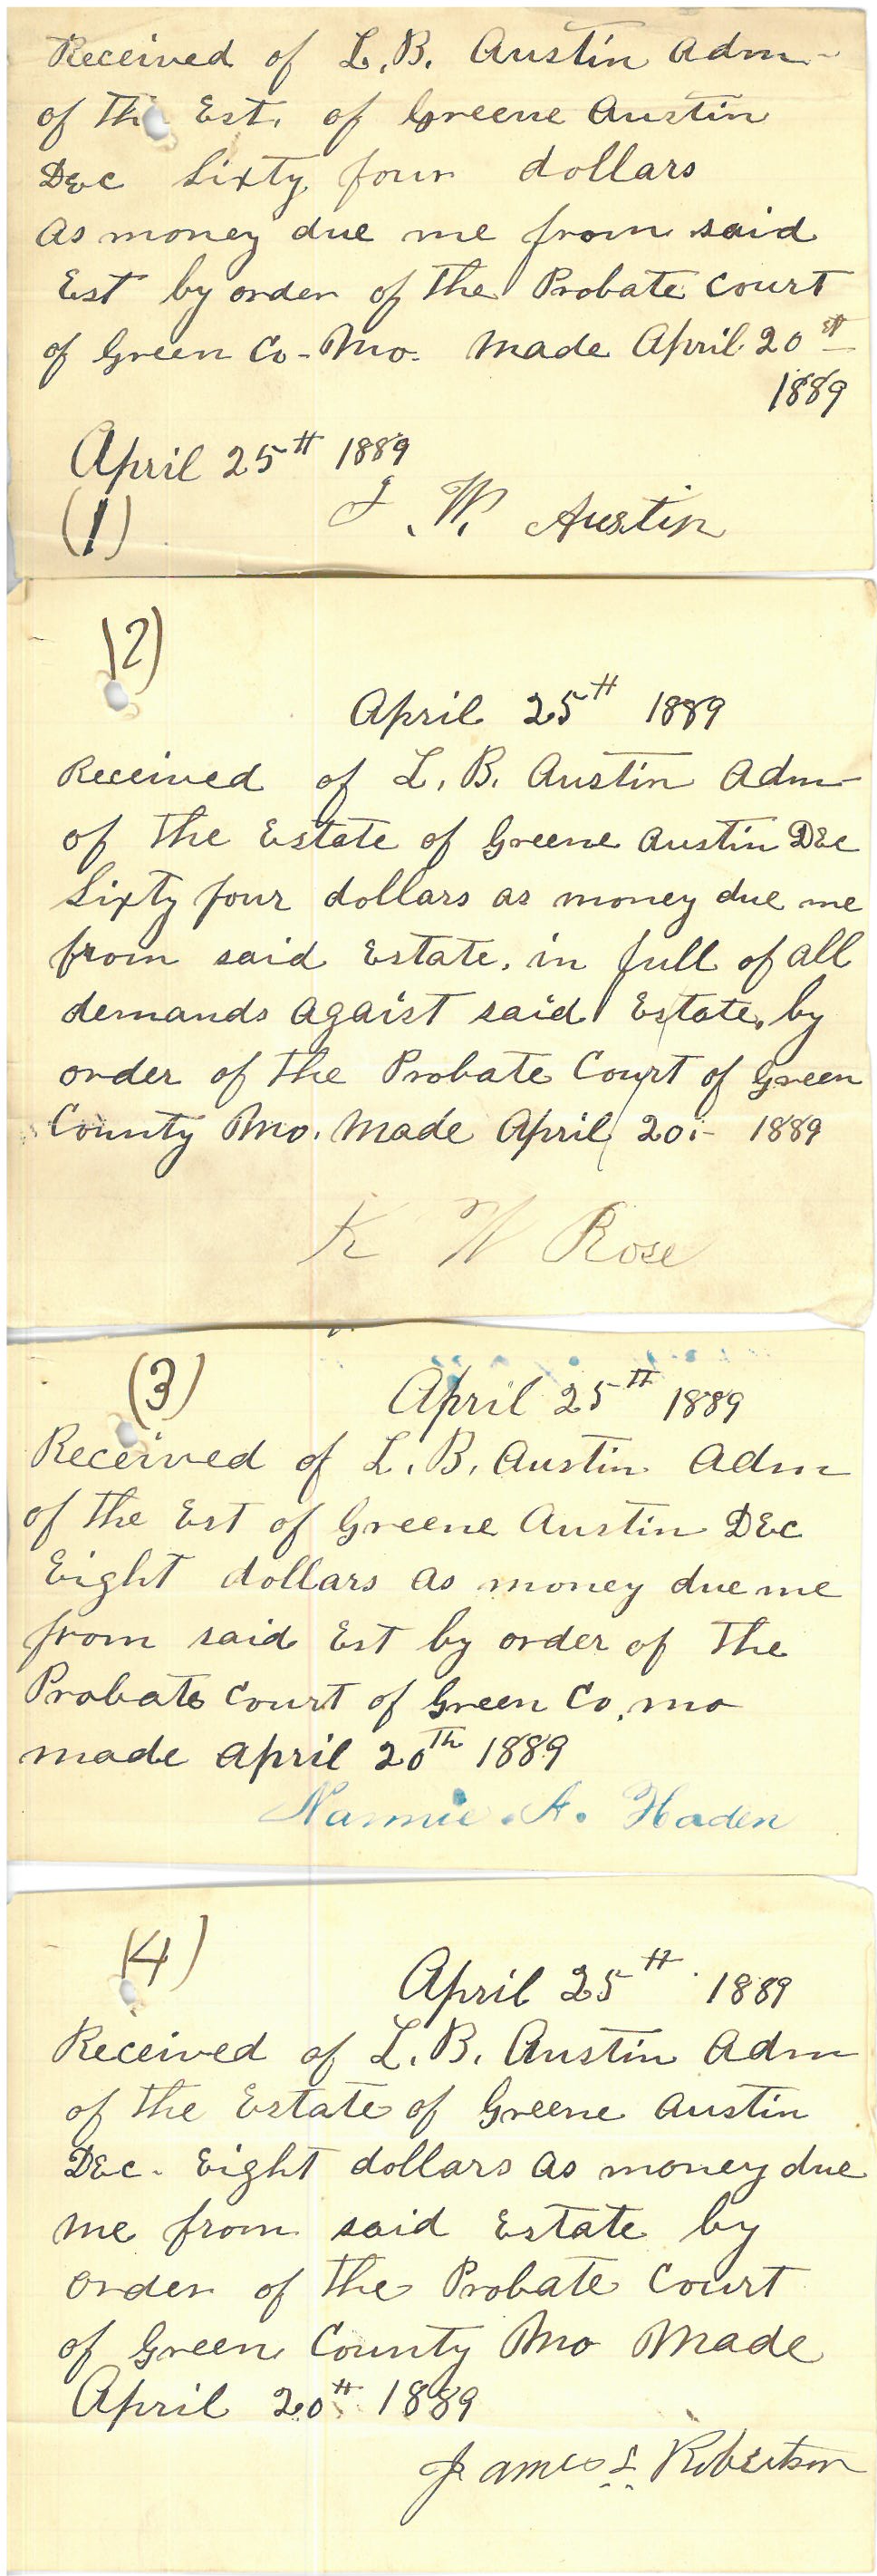 Received of L. B. Austin Adm-
of the Est. of Greene Austin
Dec Sixty four dollars
As money due me from said
Est by order of the Probate Court
of Green Co-Mo. Made April 20th
1889
April 25th 1889
(1) J. W. Austin
(2)
April 25th 1889
Received of L. B. Austin Adm
of The Estate of Greene Austin Dec
Sixty four dollars as money due me
from said Estate, in full of all
demands agaist said Estate, by
order of the Probate Court of Green
County Mo. Made April 20.- 1889
K W Rose
(3) April 25th 1889
Received of L. B. Austin Adm
of the Est of Greene Austin Dec
Eight dollars as money due me
from said Est by order of The
Probate Court of Green Co, mo
made april 20Th 1889
Nannie. A. Haden
(4)
April 25th 1889
Received of L. B. Austin Adm
of the Estate of Greene Austin
Dec. Eight dollars as money due
me from said Estate by
order of the Probate Court
of Green County Mo Made
April 20th 1889
James L Robertson